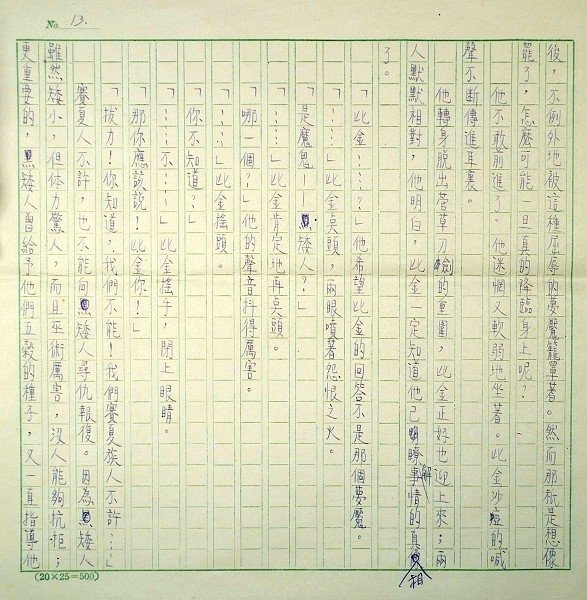 No. 13.
後，不例外地被這種屈辱的夢魘籠罩著。然而那祇是想像
罷了，怎麼可能一旦真的降臨身上呢？
他不敢前進了。他迷惘又軟弱地坐著。此金沙瘂的喊
聲不斷傳進耳裏。
他轉身脫出菅草刀劍的重圍，此金正好也迎上來；兩
人默默相對，他明白，此金一定知道他已瞭解事情的真相
了。
「此金！……？」他希望此金的回答不是那個夢魘。
「……」此金点頭，兩眼噴著怨恨之火。
「是魔鬼──黑矮人？」
「……」此金肯定地再点頭。
「哪一個？」他的聲音抖得厲害。
「……」此金搖頭。
「你不知道？」
「……不……」此金搖手，閉上眼睛。
「那你應該說！此金你！」
「拔力！你知道，我們不能！我們賽夏族人不許……」
賽夏人不許，也不能向黑矮人尋仇報復。因為黑矮人
雖然矮小，但体力驚人，而且巫術厲害，沒人能夠抗拒；
更重要的，黑矮人曾給予他們五穀的種子，又一直指導他
(20×25=500)